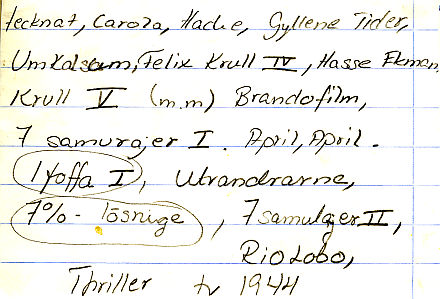 tecknat, Caroza, Hacke, Gyllene Tider,
Umkalsum, Felix Krull IV, Hasse Ekman,
Krull V (m.m) Brandofilm,
7 samurajer I. April, April.
I, Utvandrarna,
7% - lösnige, 7 samulajer II,
Rio Lobo,
Thriller tv 1944